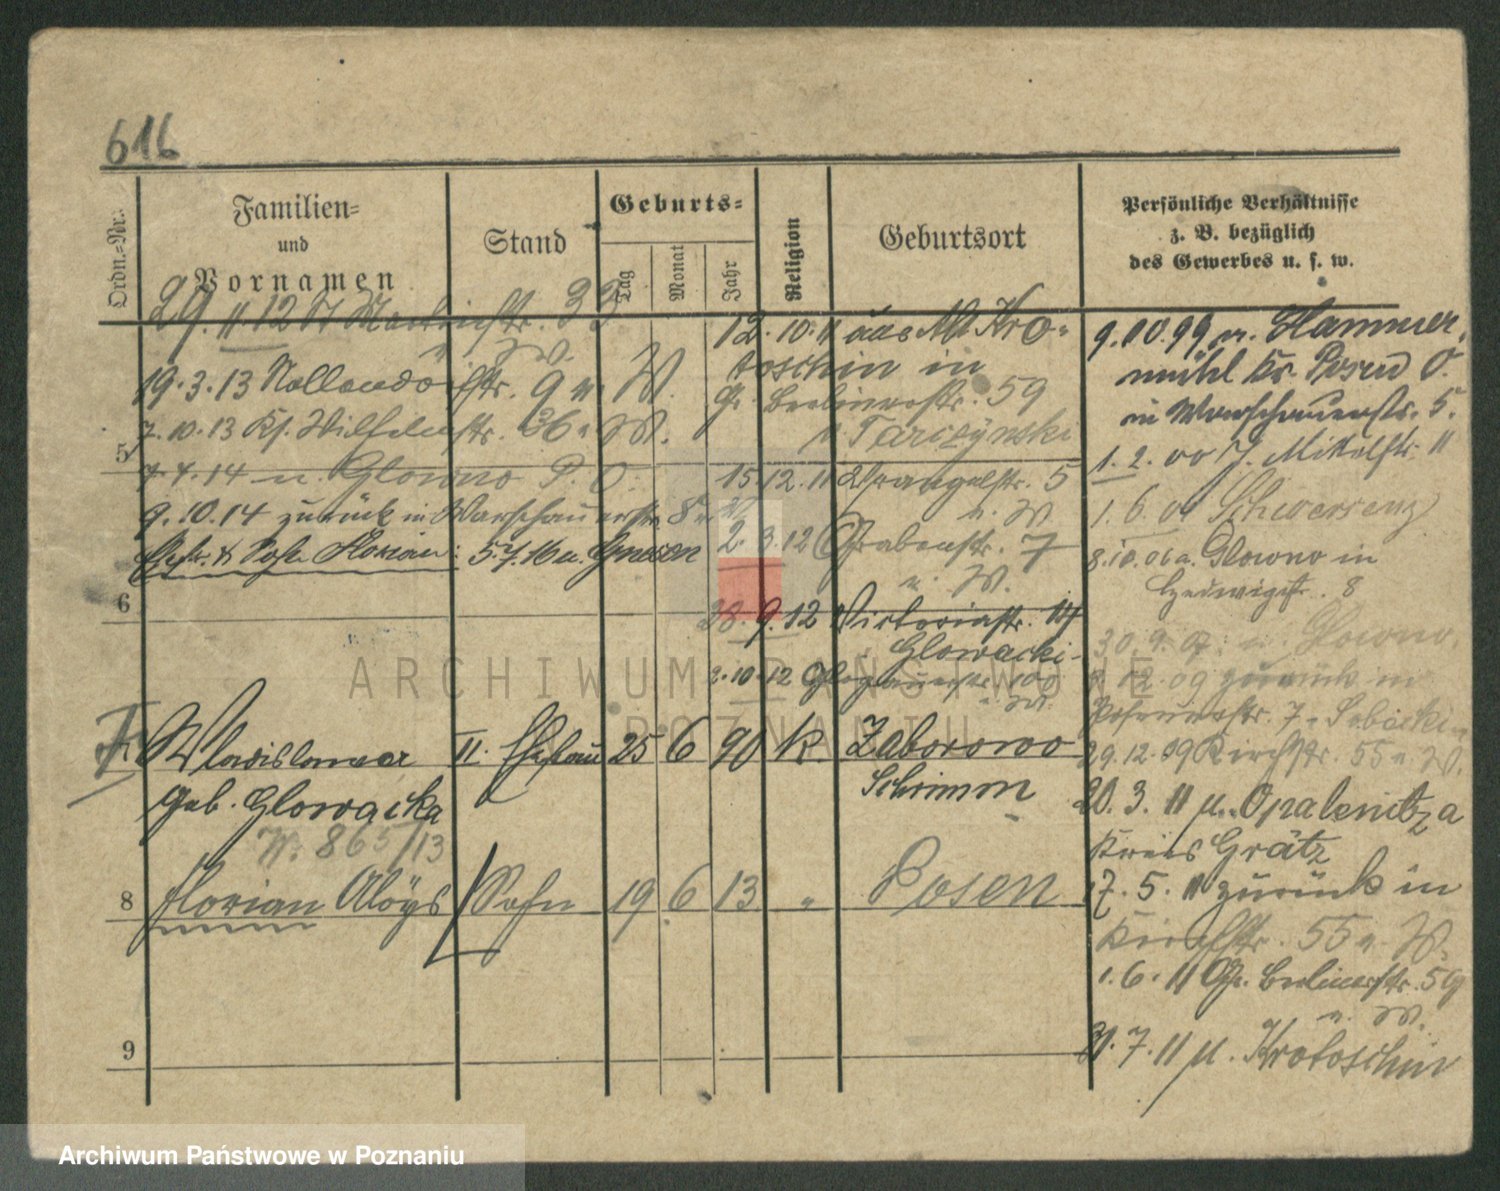 616
Ordn.=Nr.
Familien=
und
Vornamen
Stand
Geburts=
Tag
Monat
Jahr
Religion
Geburtsort
Persönliche Verhältnisse
z. B. bezüglich
des Gewerbes u. s. w.
29.11.12 St Martinstr. 33
W.
19.3.13 Nollendorfstr. 9 u. W.
7.10.13 Ks. Wilhelmstr. 36 u. W.
5
7.4.14 u. Glowno P. O.
9.10.14 zurück in Warschauerstr. 8
Ehefr. & Sohn Florian: 5.7.16 u. Gnesen
6
12.10.11 aus Alt Kro=
toschin in
Gr. Berlinerstr. 59
b. Tarczynski
15.12.11 Wrangelstr. 5
u. W.
2.3.12 Grabenstr. 7
u. W.
28.9.12 Victoriastr.
Glowacki
2.10.12 Glogauerstr. 100
u. W.
7
Wladislawa II. Ehefrau 25 6 90 k. Zaborowo
geb. Glowacka
Schrimm
W. 865/13
8 Florian Aloys Sohn 19 6 13 " Posen
9
9.10.99 a. Hammer=
mühl Kr. Posen O.
in Warschauerstr. 5.
1.2.00 J. Mittelstr. 11
1.6.01 Schwersenz
8.10.06 a. Glowno in
Hedwigstr. 8
30.9.07 u. Glowno
12.09 zurück in
Posenerstr. 7
29.12.09 Kirchstr. 55 u. W.
20.3.11 u. Opalenitza
Kreis Grätz
17.5.11 zurück in
Kirchstr. 55 u. W.
1.6.11 Gr. Berlinerstr. 59
u. W.
31.7.11 u. Krotoschin
ARCHIWUM PAŃSTWOWE
W POZNANIU
Archiwum Państwowe w Poznaniu